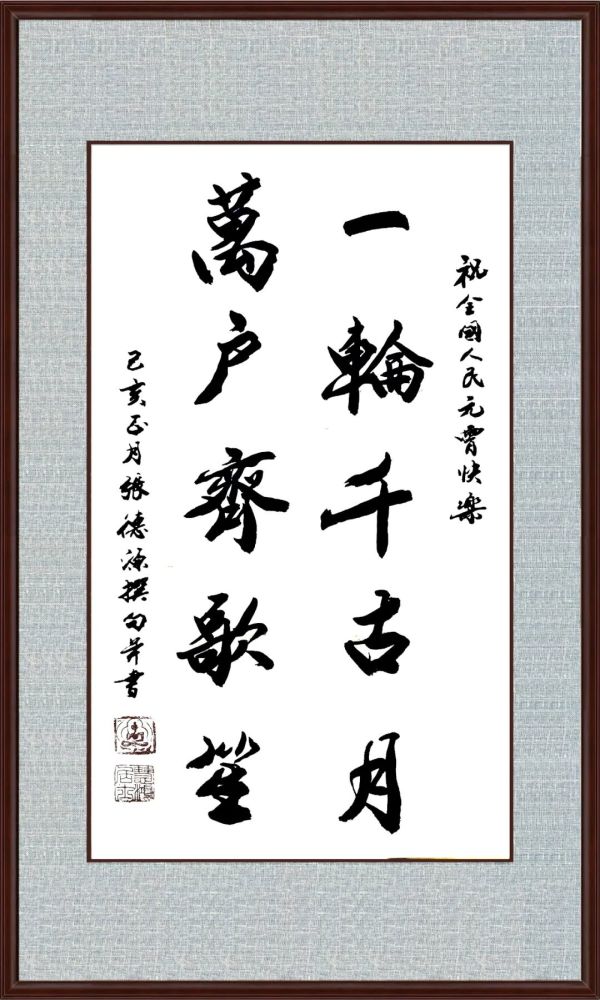 祝全國人民元宵快樂
一輪千古月
萬户齊歌笙
己亥正月張德源撰句并書